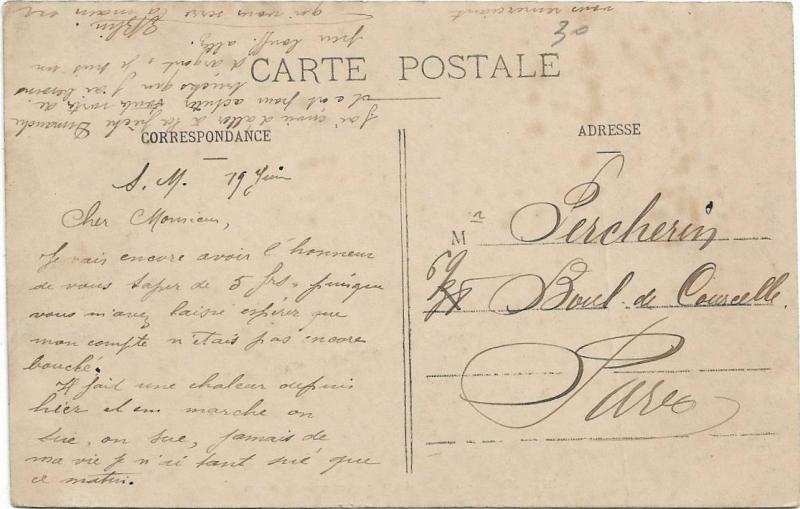 CARTE POSTALE
CORRESPONDANCE
ADRESSE
S. M. 19 Juin
Cher Monsieur,
Je vais encore avoir l'honneur
de vous taper de 5 frs, puisque
vous m'avez laissé espérer que
mon compte n'étais pas encore
bouché.
Il fait une chaleur depuis
hier et en marche on
sue, on sue, jamais de
ma vie je n'ai tant sué que
ce matin.
J'ai envie d'aller à la pêche Dimanche
et c'est pour acheter toute sorte de
trucks que j'ai besoin
d'argent, je suis un
peu bouff. allez.
vous remerciant
qui vous serre la main
30
M r Percherin
69
Boul. de Courcelle.
Paris